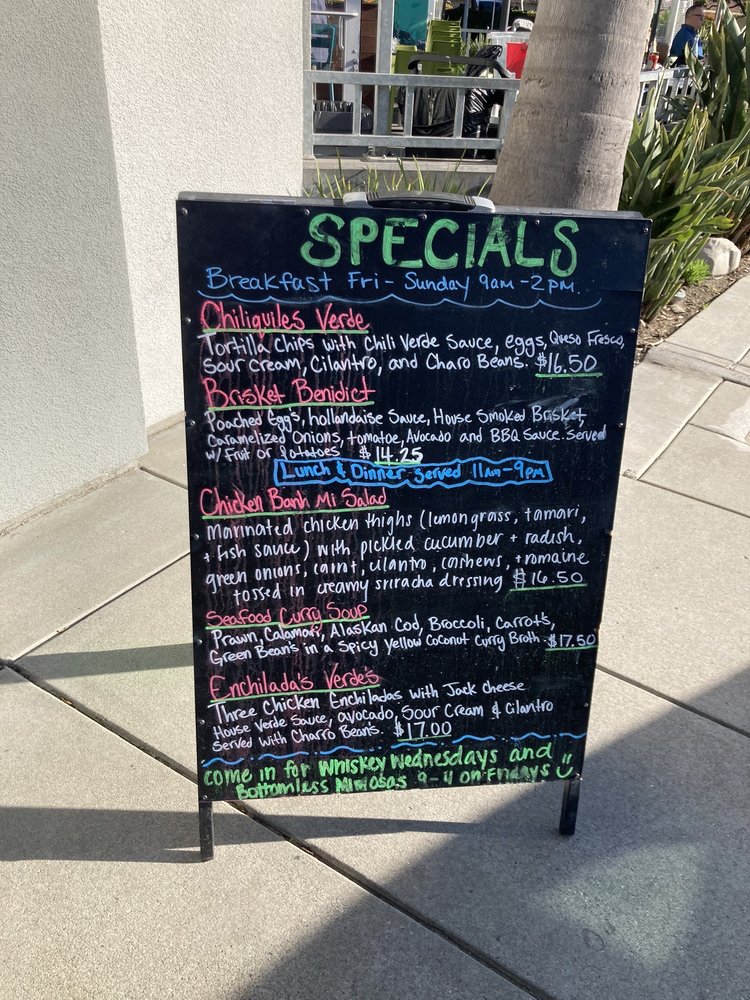 SPECIALS
Breakfast Fri - Sunday 9am - 2pm.
Chiliquiles Verde
Tortilla chips with Chili Verde Sauce, eggs, Queso Fresco,
Sour Cream, Cilantro, and Charo Beans. $16.50
Brisket Benidict
Poached Egg's, hollandaise Sauce, House Smoked Brisket,
Caramelized Onions, tomatoe, Avocado and BBQ Sauce. Served
w/ Fruit or Potatoes $14.25
Lunch & Dinner Served 11am - 9pm
Chicken Banh Mi Salad
marinated chicken thighs (lemongrass, tamari,
+ fish sauce) with pickled cucumber + radish,
green onions, carrot, cilantro, cashews, + romaine
tossed in creamy sriracha dressing $16.50
Seafood Curry Soup
Prawn, Calamari, Alaskan Cod, Broccoli, Carrot's,
Green Bean's in a Spicy Yellow Coconut Curry Broth $17.50
Enchilada's Verde's
Three Chicken Enchiladas with Jack cheese
House Verde Sauce, avocado, Sour Cream & Cilantro
Served with Charro Bean's. $17.00
come in for Whiskey Wednesdays and
Bottomless Mimosas 9-4 on Fridays